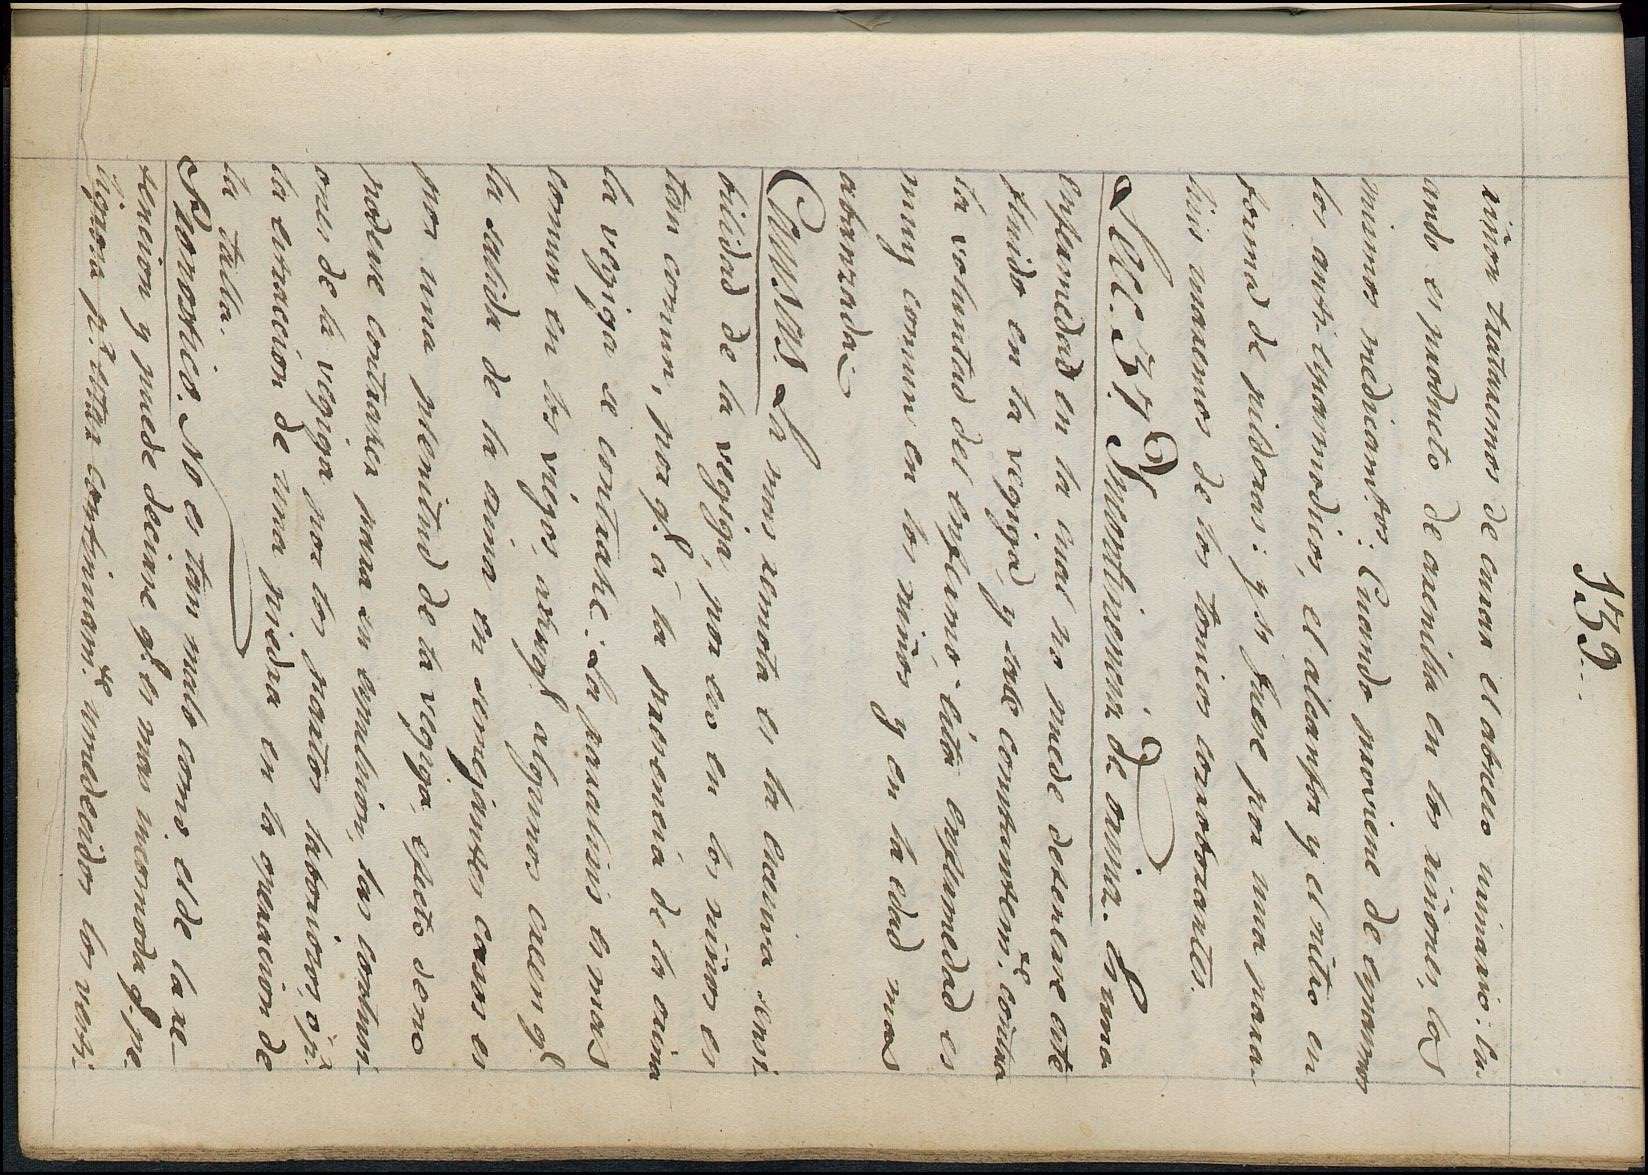 139..
riñon trataremos de curar el absceso urinario: Cu-
ando es producto de arenilla en los riñones, los
mismos medicamtos: Cuando proviene de espasmos
los anti-espasmodicos, el alcanfor y el nitro en
forma de pildoras: y si fuese por una para-
lisis usaremos de los tonicos corroborantes.
Lecc. 37 Yncontinencia de orina. Es una
enfermedad en la cual no puede detenerse este
fluido en la vegiga, y sale constantemte contra
la voluntad del enfermo: esta enfermedad es
muy comun en los niños y en la edad mas
abanzada
Causas. La mas remota es la excesiva sensi-
bilidad de la vegiga, por eso en los niños es
tan comun, por qe á la presencia de la orina
la vegiga se contrahe: La paralisis es mas
comun en los viejos, aunqe algunos creen qe
la salida de la orina en semejantes casos es
por una plenitud de la vegiga, efecto de no
poderse contraher para su espulsion, las contusi-
ones de la vegiga por los partos laboriosos, o pr
la estraccion de una piedra en la operacion de
la talla.
Pronostico. No es tan malo como el de la re-
tencion y puede decirse qe es mas incomoda qe pe-
ligrosa pr estar continuamte umedecidos los vesti-